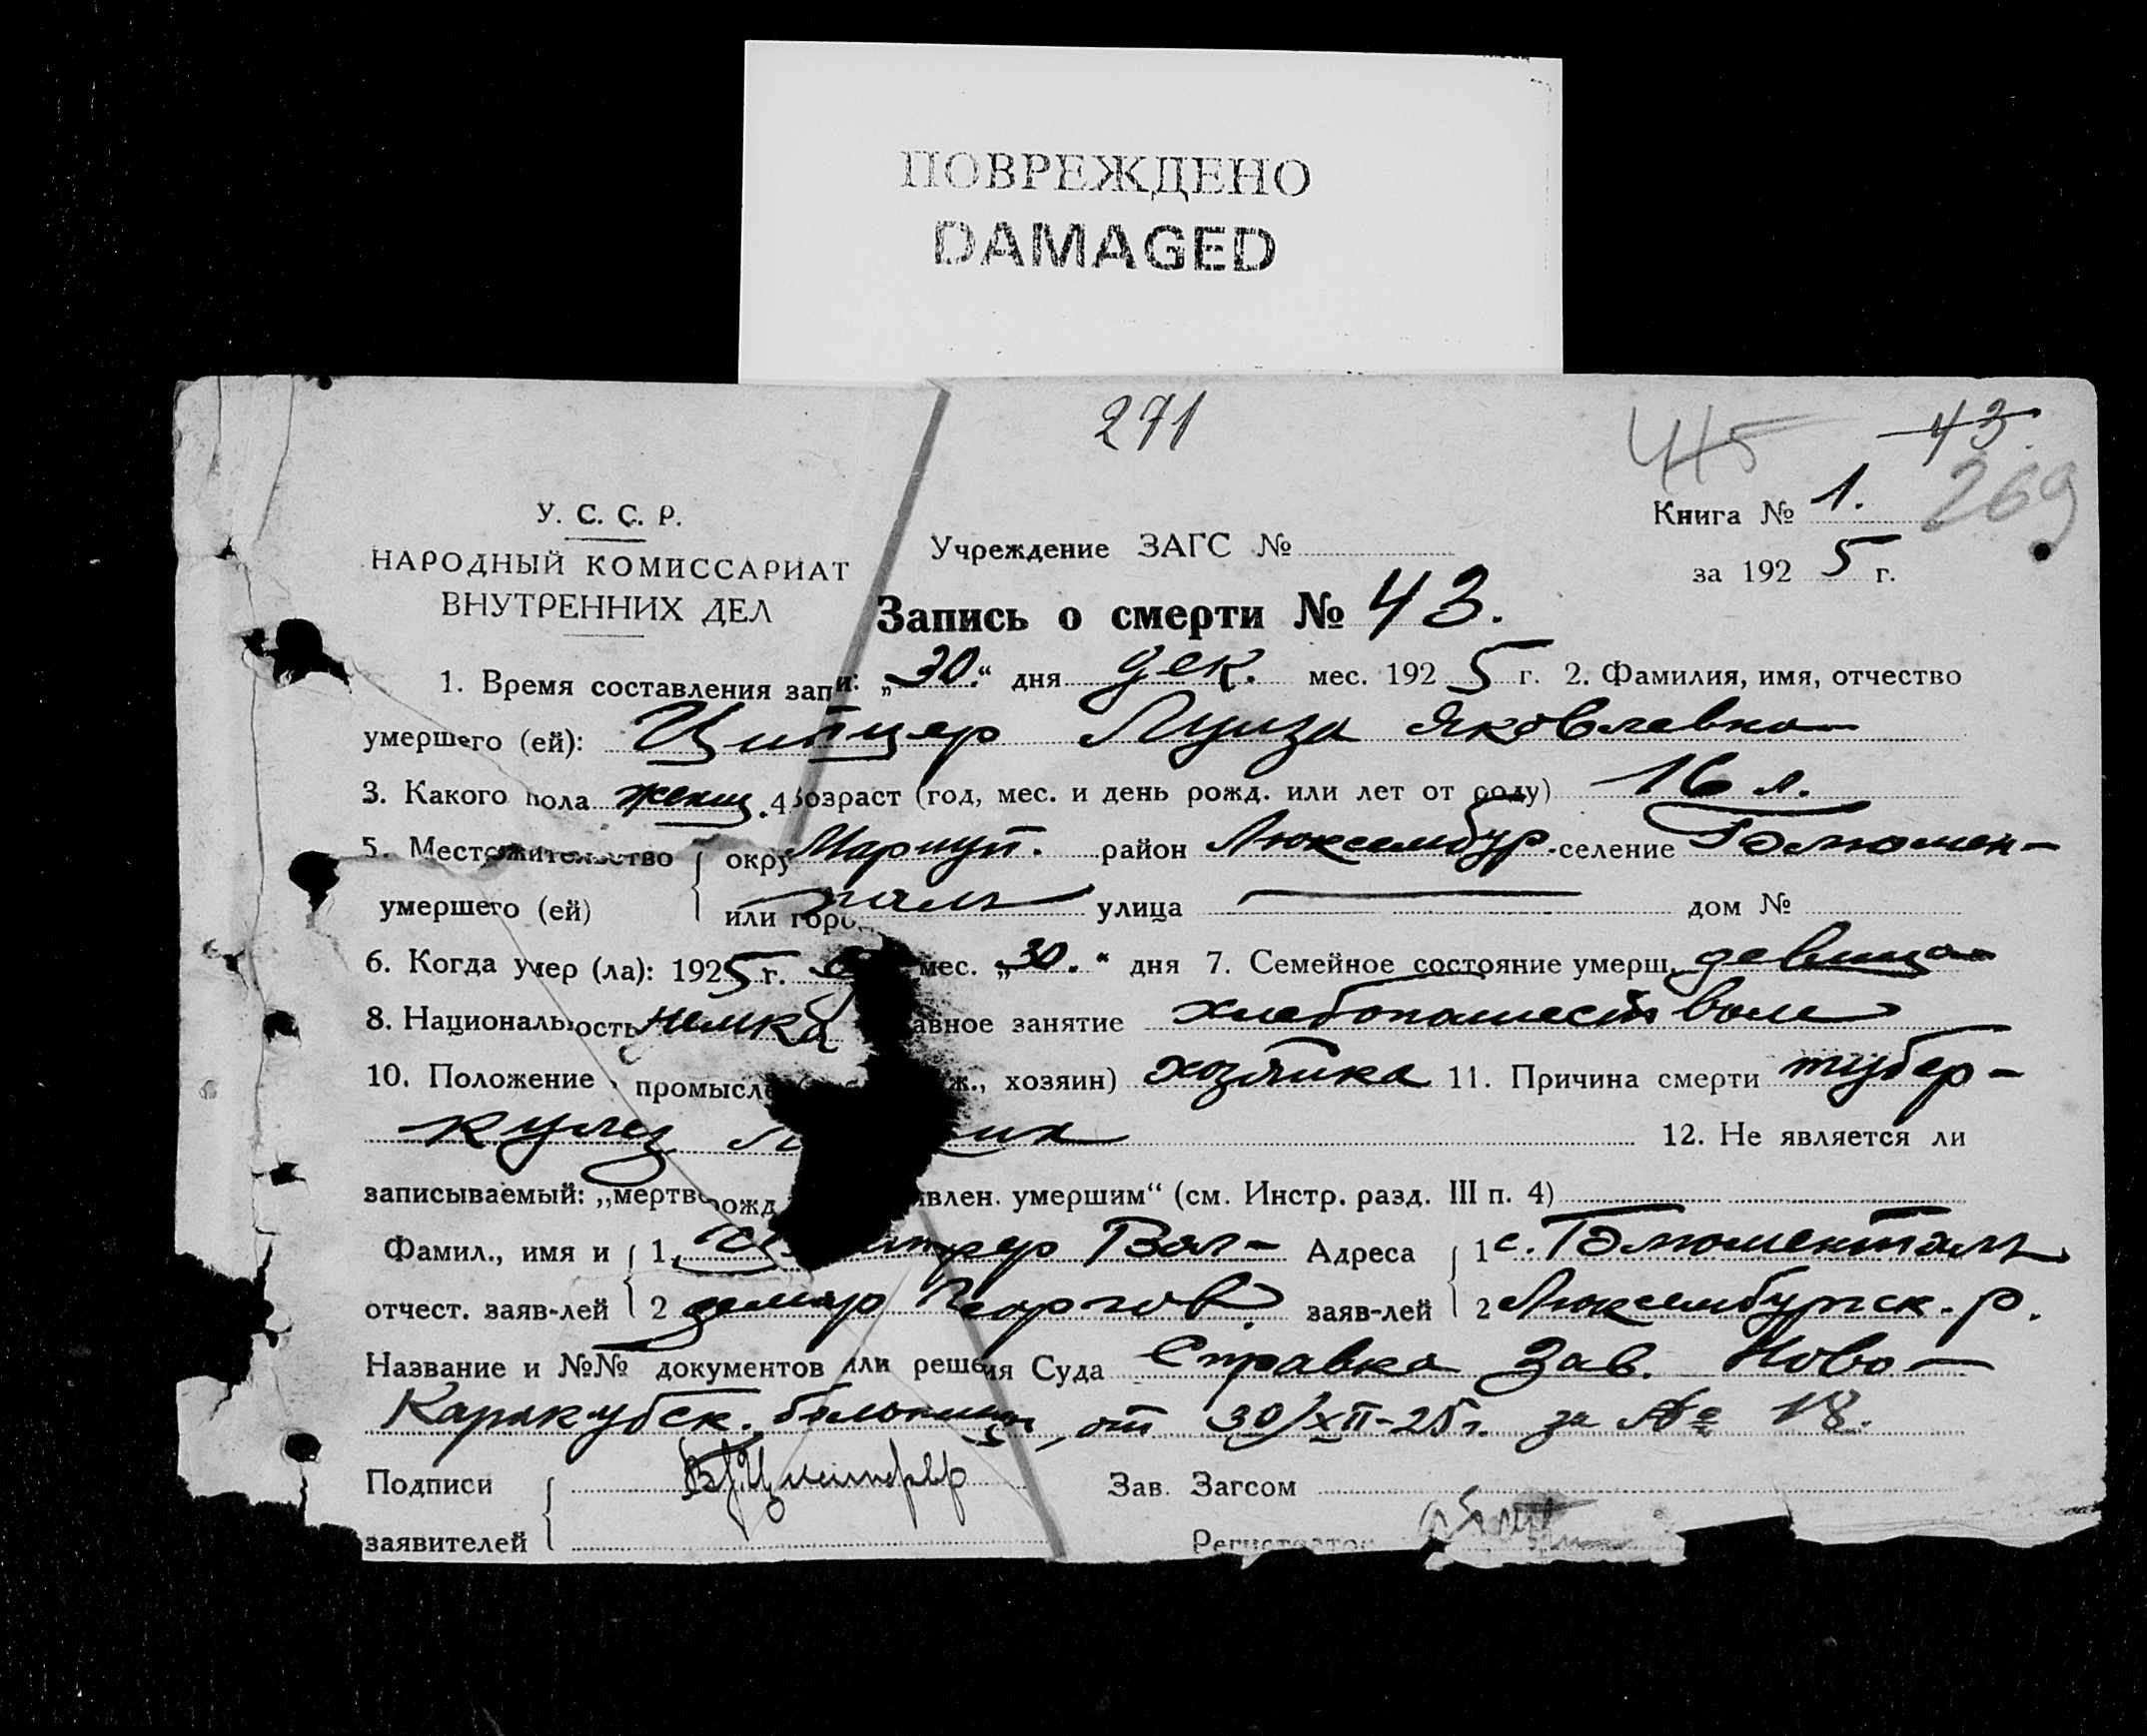 ПОВРЕЖДЕНО
DAMAGED
271
45 43
269
У. С. С. Р.
НАРОДНЫЙ КОМИССАРИАТ
ВНУТРЕННИХ ДЕЛ
Учреждение ЗАГС №
Книга № 1.
за 1925 г.
Запись о смерти № 43.
1. Время составления запи: „30.“ дня дек. мес. 1925 г. 2. Фамилия, имя, отчество
умершего (ей): Ципцер Луиза Яковлевна
3. Какого пола женщ. 4 возраст (год, мес. и день рожд. или лет от роду) 16 л.
5. Местожительство окру Мариуп. район Люксембур. селение Блюмен-
умершего (ей) или горо таль улица — дом №
6. Когда умер (ла): 1925 г. мес. „30.“ дня 7. Семейное состояние умерш. девица
8. Национальность немка авное занятие хлебопашеством
10. Положение промысле ж., хозяин) хозяйка 11. Причина смерти тубер-
кулез 12. Не является ли
записываемый: „мертворожд влен. умершим“ (см. Инстр. разд. III п. 4)
Фамил., имя и 1. Вол- Адреса 1 с. Блюменталь
отчест. заяв-лей 2 демар Георгов. заяв-лей 2 Люксембургск. р.
Название и №№ документов или решения Суда Справка Зав. Ново-
Каракубск. больницы, от 30/XII-25 г. за № 18.
Подписи Зав. Загсом
заявителей Регистратор